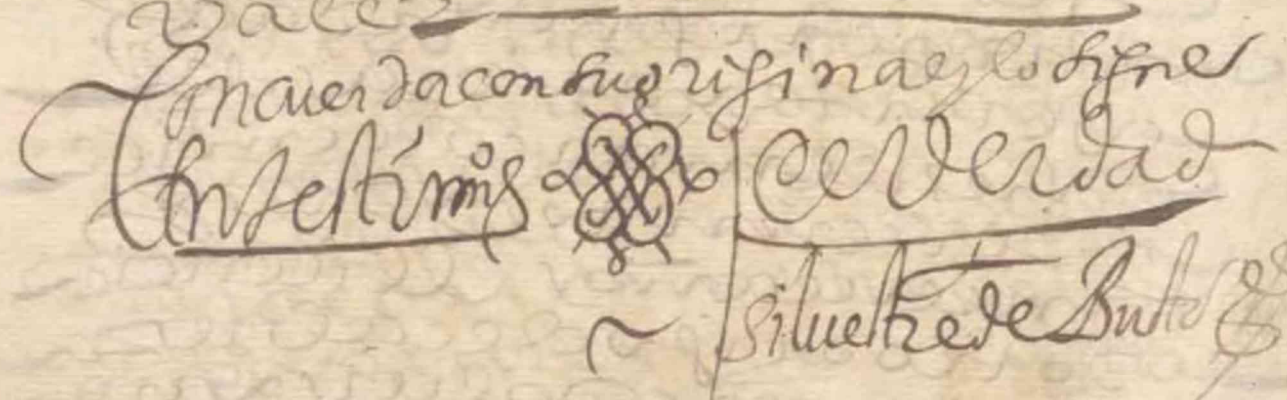 Vale
Concuerda con su original y lo signe
En testimº de Verdad
silvestre de